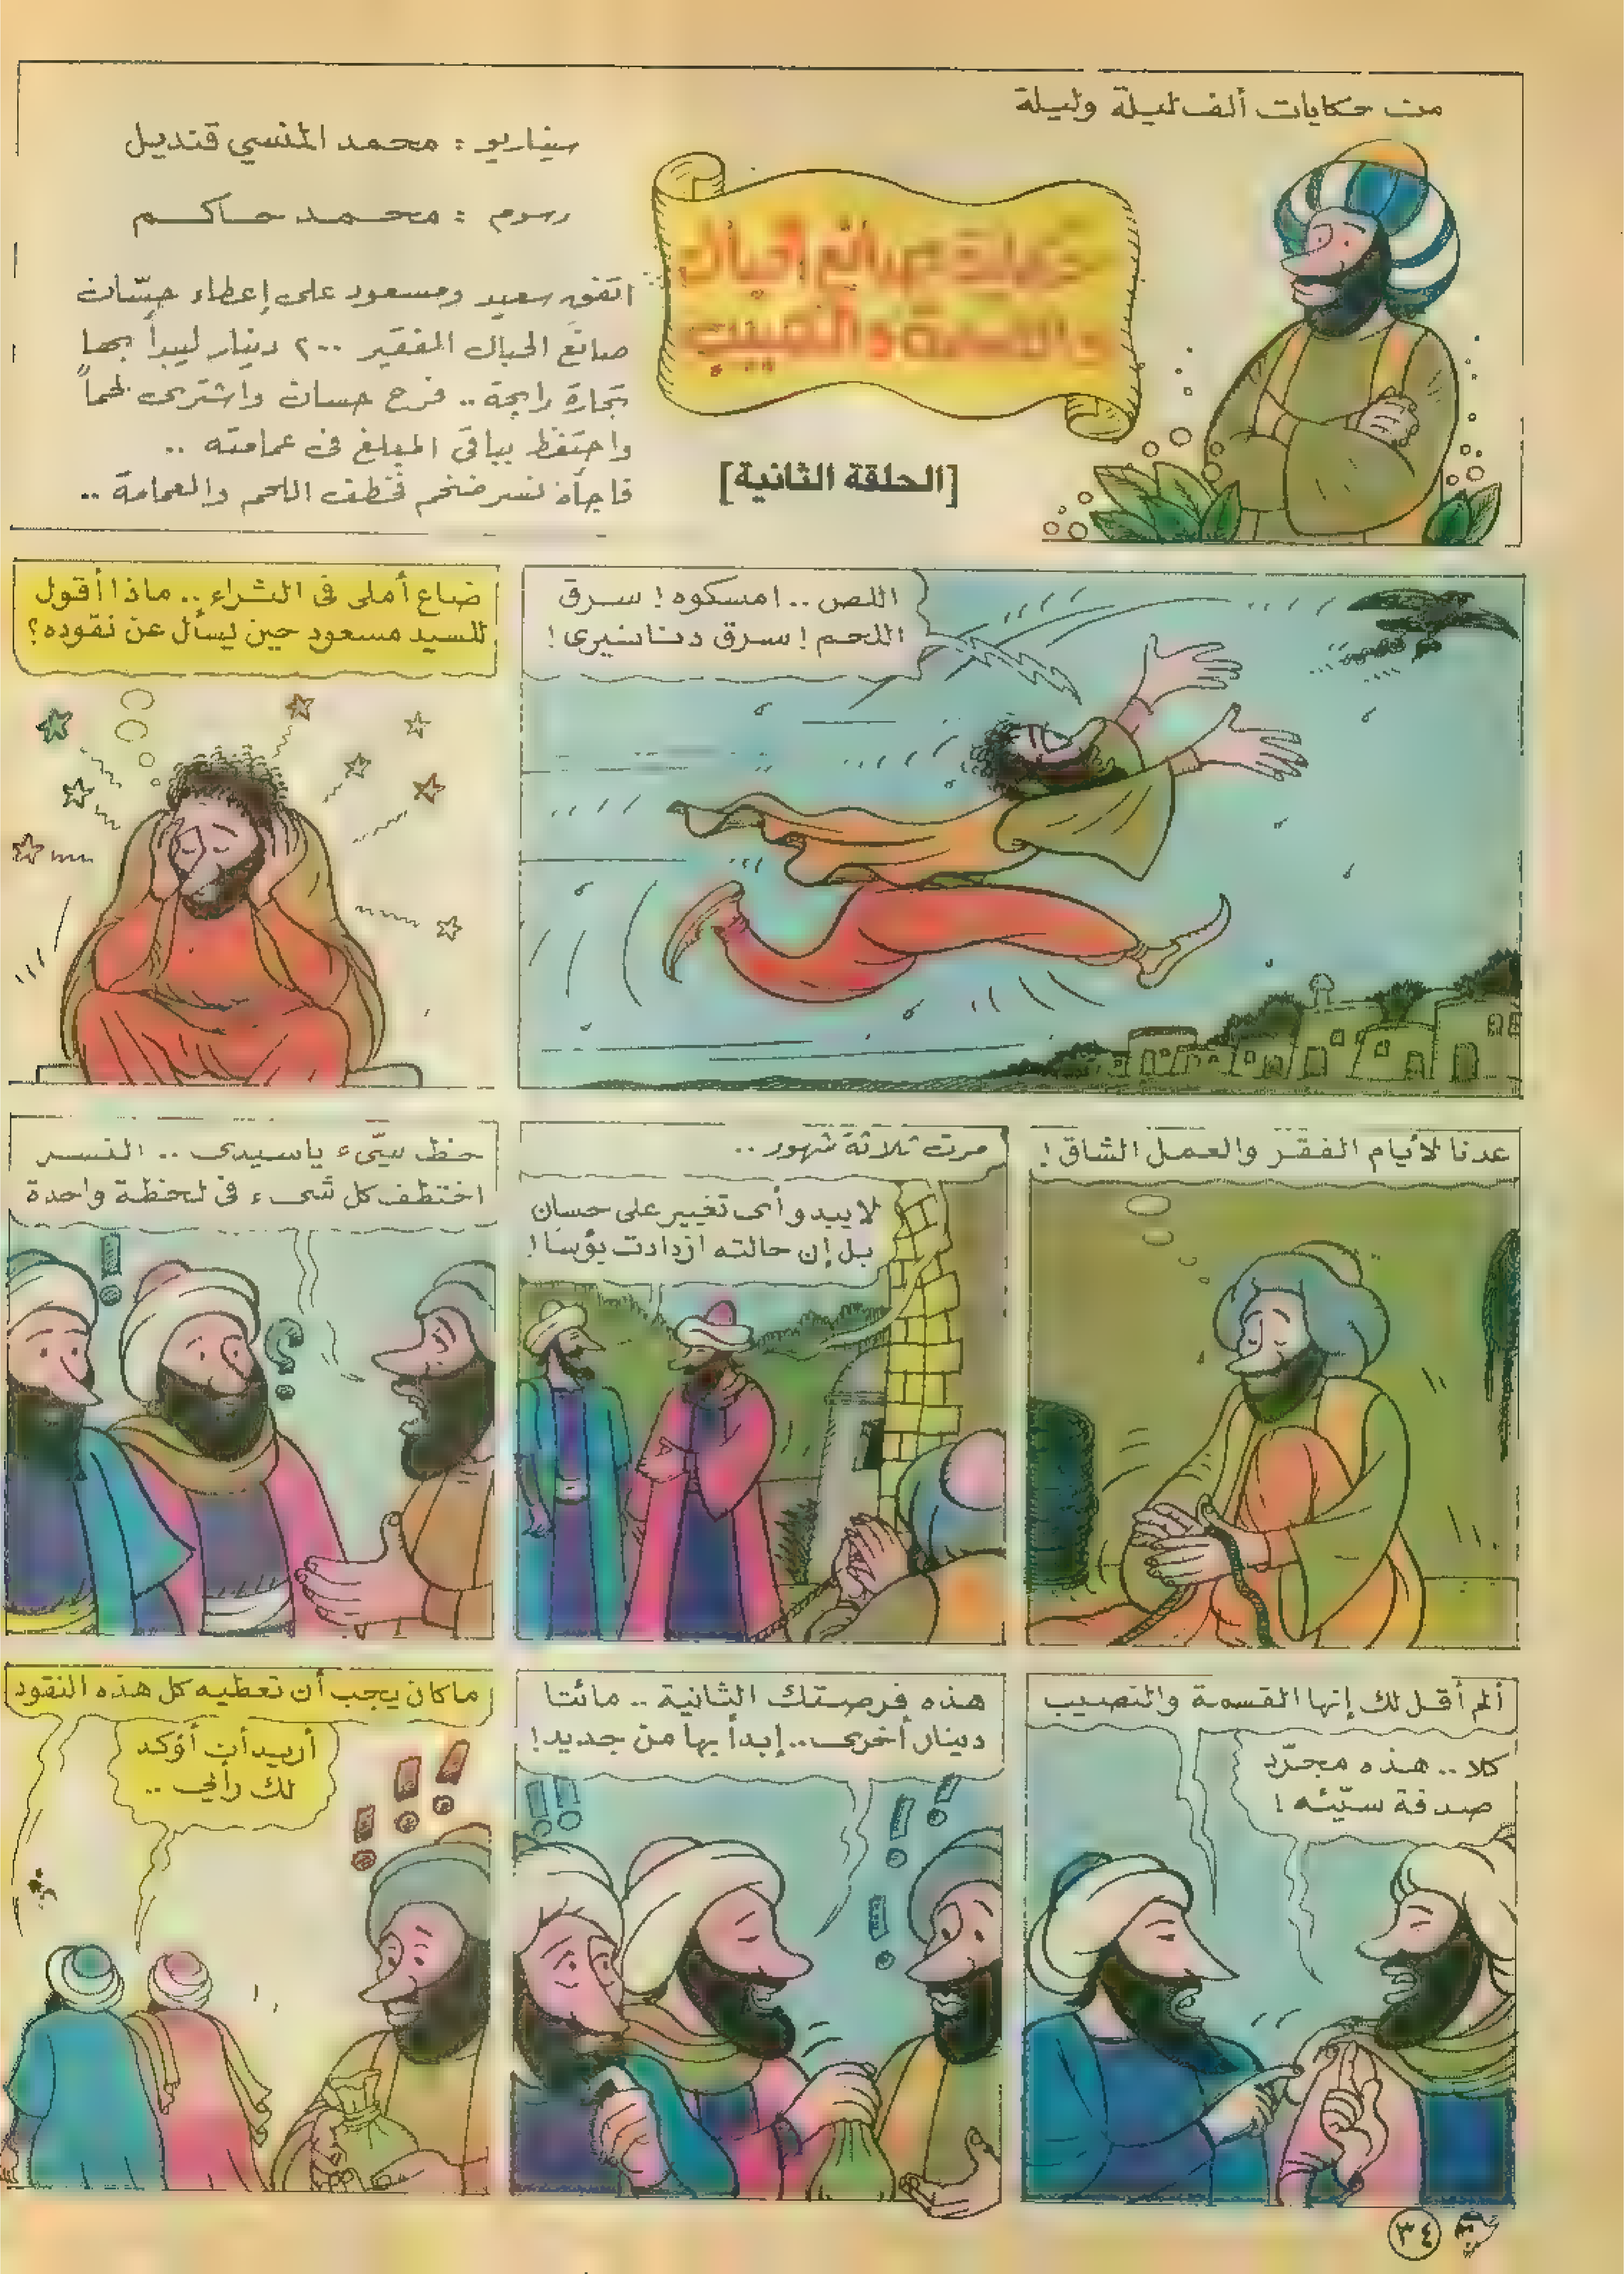 من حكايات ألف ليلة وليلة
حكاية صانع الحبال
والقسمة والنصيب
[الحلقة الثانية]
سيناريو : محمد المنسي قنديل
رسوم : محمد حاكم
اتفق سعيد ومسعود على إعطاء حسّان
صانع الحبال الفقير ٢٠٠ دينار ليبدأ بها
تجارة رابحة .. فرح حسان واشترى لحماً
واحتفظ بباقي المبلغ في عمامته ..
فاجأه نسر ضخم فخطف اللحم والعمامة ..
اللص .. امسكوه ! سرق
اللحم ! سرق دنانيري !
ضاع أملى في الثراء .. ماذا أقول
للسيد مسعود حين يسأل عن نقوده ؟
عدنا لأيام الفقر والعمل الشاق !
مرت ثلاثة شهور ..
لا يبدو أى تغيير على حسان
بل إن حالته ازدادت بؤسا !
حظ سيّىء ياسيدى .. النسر
اختطف كل شىء فى لحظة واحدة
ألم أقل لك إنها القسمة والنصيب
كلا .. هذه مجرّد
صدفة سيّئه !
هذه فرصتك الثانية .. مائتا
دينار أخرى .. إبدأ بها من جديد !
ماكان يجب أن تعطيه كل هذه النقود
أريد أن أؤكد
لك رأيي ..
٣٤